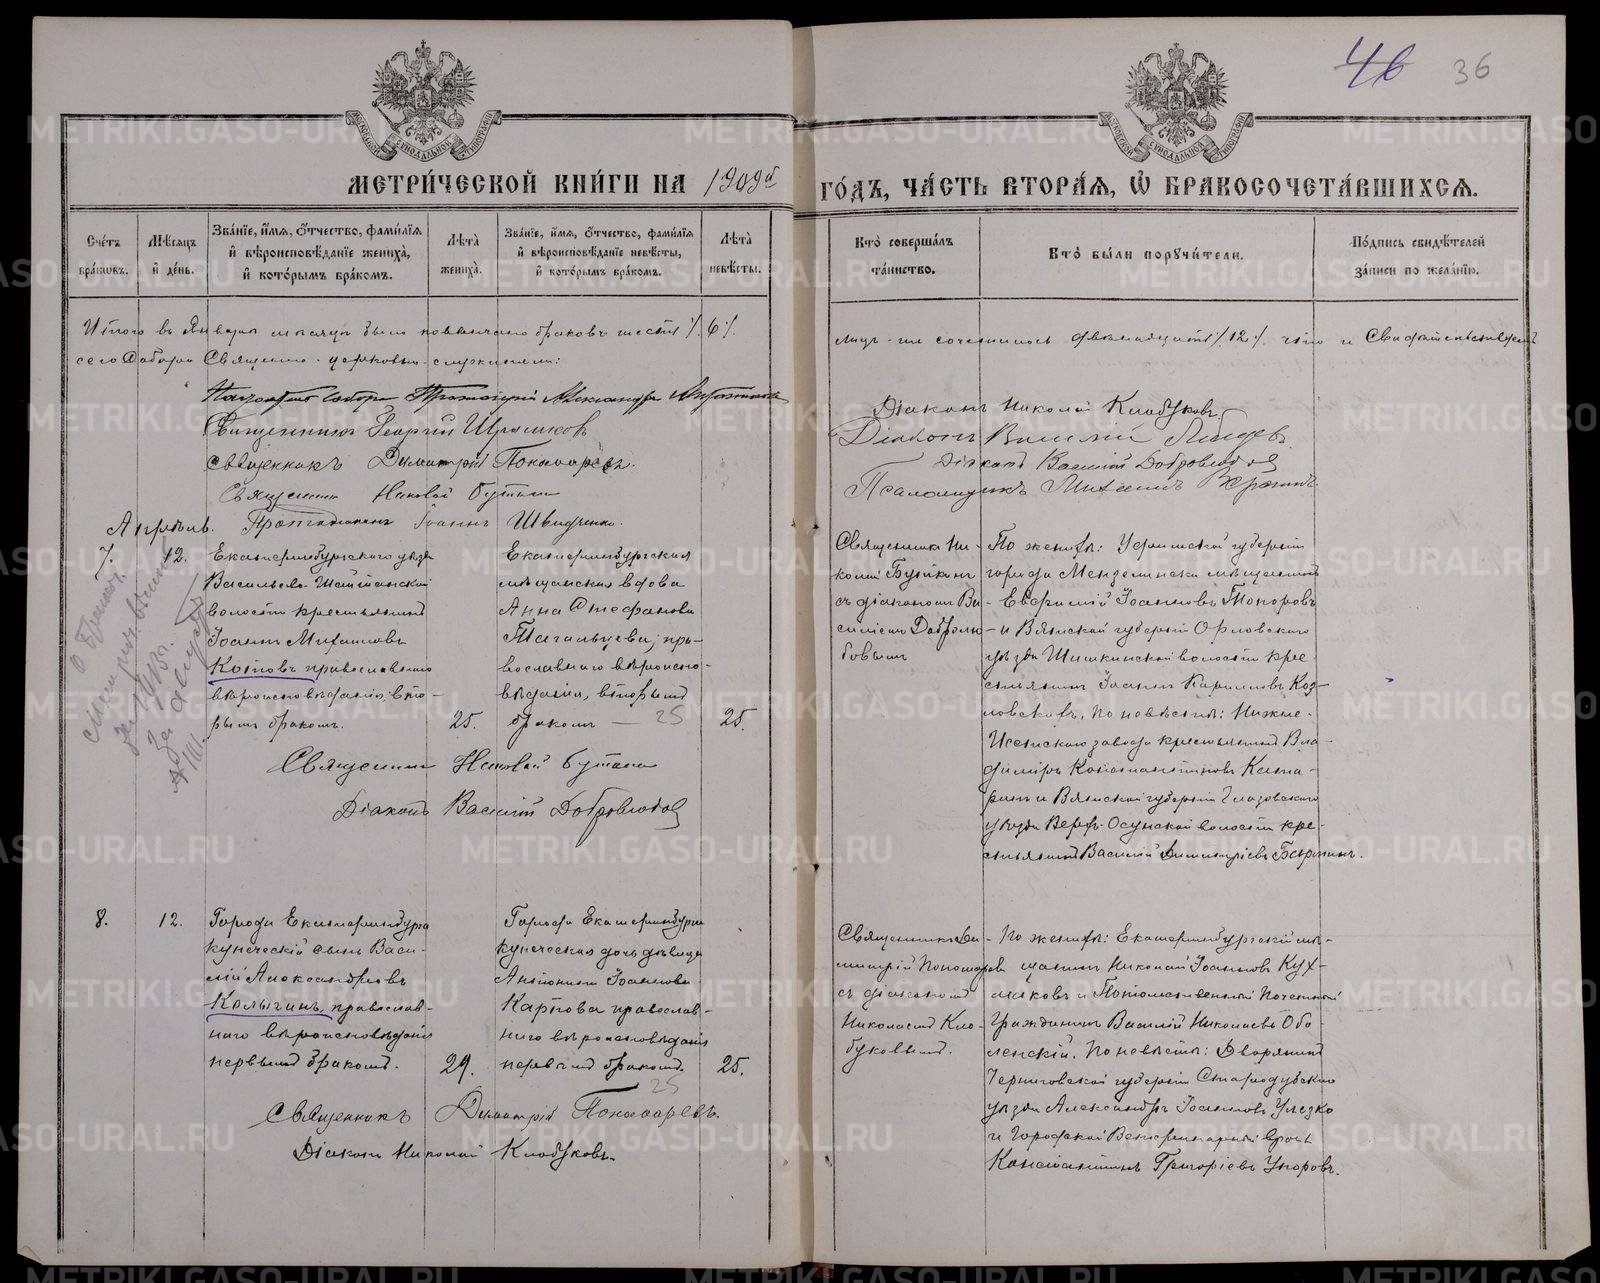 46 36
МЕТРИ́ЧЕСКОЙ КНИ́ГИ НА 1909й ГО́ДЪ, ЧА́СТЬ ВТОРА́Я, Ѡ҆ БРАКОСОЧЕТА́ВШИХСЯ.
Сче́тъ бра́ковъ.
Мѣ́сяцъ и҆ де́нь.
Зва́нїе, и҆́мя, ѻ҆́тчество, фами́лїя
и҆ вѣроисповѣ́данїе жениха̀,
и҆ кото́рымъ бра́комъ.
Лѣта̀ жениха̀.
Зва́нїе, и҆́мя, ѻ҆́тчество, фами́лїя
и҆ вѣроисповѣ́данїе невѣ́сты,
и҆ кото́рымъ бра́комъ.
Лѣта̀ невѣ́сты.
Кто̀ соверша́лъ та́инство.
Кто̀ бы́ли поручи́тели.
По́дпись свидѣ́телей за́писи по жела́нїю.
Итого въ Январѣ мѣсяцѣ было повѣнчано браковъ шесть /.6/. лицъ-же сочеталось двѣнадцать /.12/. что и Свидѣтельствуемъ
сего Собора Священно-церковно-служители:
Священникъ Георгій
Священникъ Димитрій Пономаревъ.
Священникъ Николай Буткинъ
Протодіаконъ Іоаннъ Швидченко.
Діаконъ Николай Клобуковъ
Діаконъ Василій Лебедев
Діаконъ Василій Добролюбов
Псаломщикъ Михаилъ
Апрѣль.
7.
12.
Екатеринбургскаго уѣзда
Васильево-Шайтанской
волости крестьянинъ
Іоаннъ Михаиловъ
Котовъ православнаго
вѣроисповѣданія, вто-
рымъ бракомъ.
25.
Екатеринбургская
мѣщанская вдова
Анна Стефанова
Тагильцева, пра-
вославнаго вѣроиспо-
вѣданія, вторымъ
бракомъ — 25
25.
Священникъ Ни-
колай Буткинъ
съ діакономъ Ва-
силіемъ Добролю-
бовымъ
По женихѣ: Уфимской губерніи
города Мензелинска мѣщанинъ
Евфимій Іоанновъ Топоровъ
и Вятской губерніи Орловского
уѣзда Шишкинской волости кре-
стьянинъ Іоаннъ Кириловъ Коз-
ловскихъ, по невѣстѣ: Нижне-
Исетскаго завода крестьянинъ Вла-
диміръ Константиновъ Ката-
евъ и Вятской губерніи Глазовскаго
уѣзда Верх-Осунской волости кре-
стьянинъ Василій Димитріевъ
Священникъ Николай Буткинъ
Діаконъ Василій Добролюбов
8.
12.
Города Екатеринбурга
купеческій сынъ Васи-
лій Александровъ
Калыгинъ, православ-
наго вѣроисповѣданія
первымъ бракомъ.
29.
Города Екатеринбурга
купеческая дочь дѣвица
Антонина Іоаннова
Карпова православ-
наго вѣроисповѣданія
первымъ бракомъ.
25
25.
Священникъ Ди-
митрій Пономаревъ
съ діакономъ
Николаемъ Кло-
буковымъ.
По женихѣ: Екатеринбургскій мѣ-
щанинъ Николай Іоанновъ Кух-
маковъ и Потомственный Почетный
Гражданинъ Василій Николаевъ Обо-
ленскій. По невѣстѣ: Дворянинъ
Черниговской губерніи Стародубскаго
уѣзда Александръ Іоанновъ Улезко
и Городской Ветеринарный врачъ
Константинъ Григоріевъ Упоровъ.
Священникъ Димитрій Пономаревъ.
Діаконъ Николай Клобуковъ.